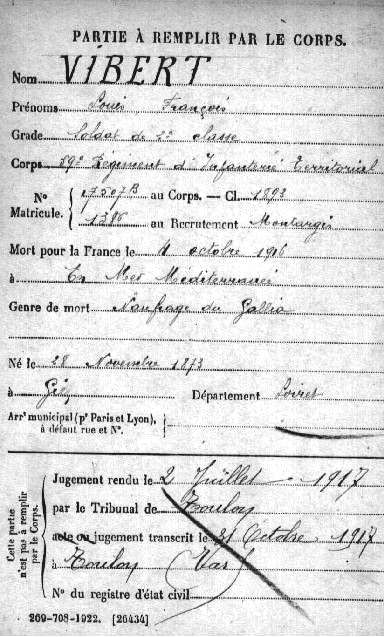 PARTIE À REMPLIR PAR LE CORPS.
Nom VIBERT
Prénoms Louis François
Grade Soldat de 2e classe
Corps 89e Régiment d'Infanterie Territorial
N° Matricule. 17507B au Corps. — Cl. 1893
1386 au Recrutement Montargis
Mort pour la France le 4 octobre 1916
à En Mer Méditerranée
Genre de mort Naufrage du Gallia
Né le 28 Novembre 1873
à Département Loiret
Arrt municipal (pr Paris et Lyon),
à défaut rue et N°.
Cette partie n'est pas à remplir par le Corps.
Jugement rendu le 2 Juillet 1917
par le Tribunal de Toulon
acte ou jugement transcrit le 31 Octobre 1917
à Toulon Var
N° du registre d'état civil
269-708-1922. [26434]